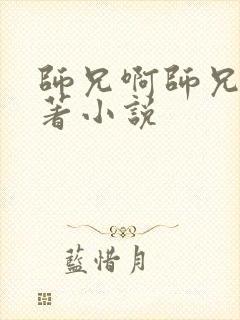 師兄啊師兄
著小説
藍惜月